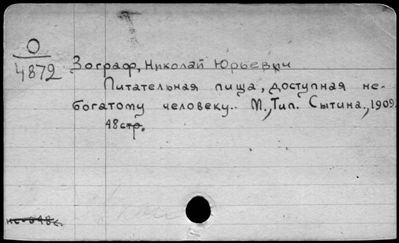 О
4872
Зограф, Николай Юрьевич
Питательная пища, доступная не-
богатому человеку.. М., Тип. Сытина, 1909.
48стр.